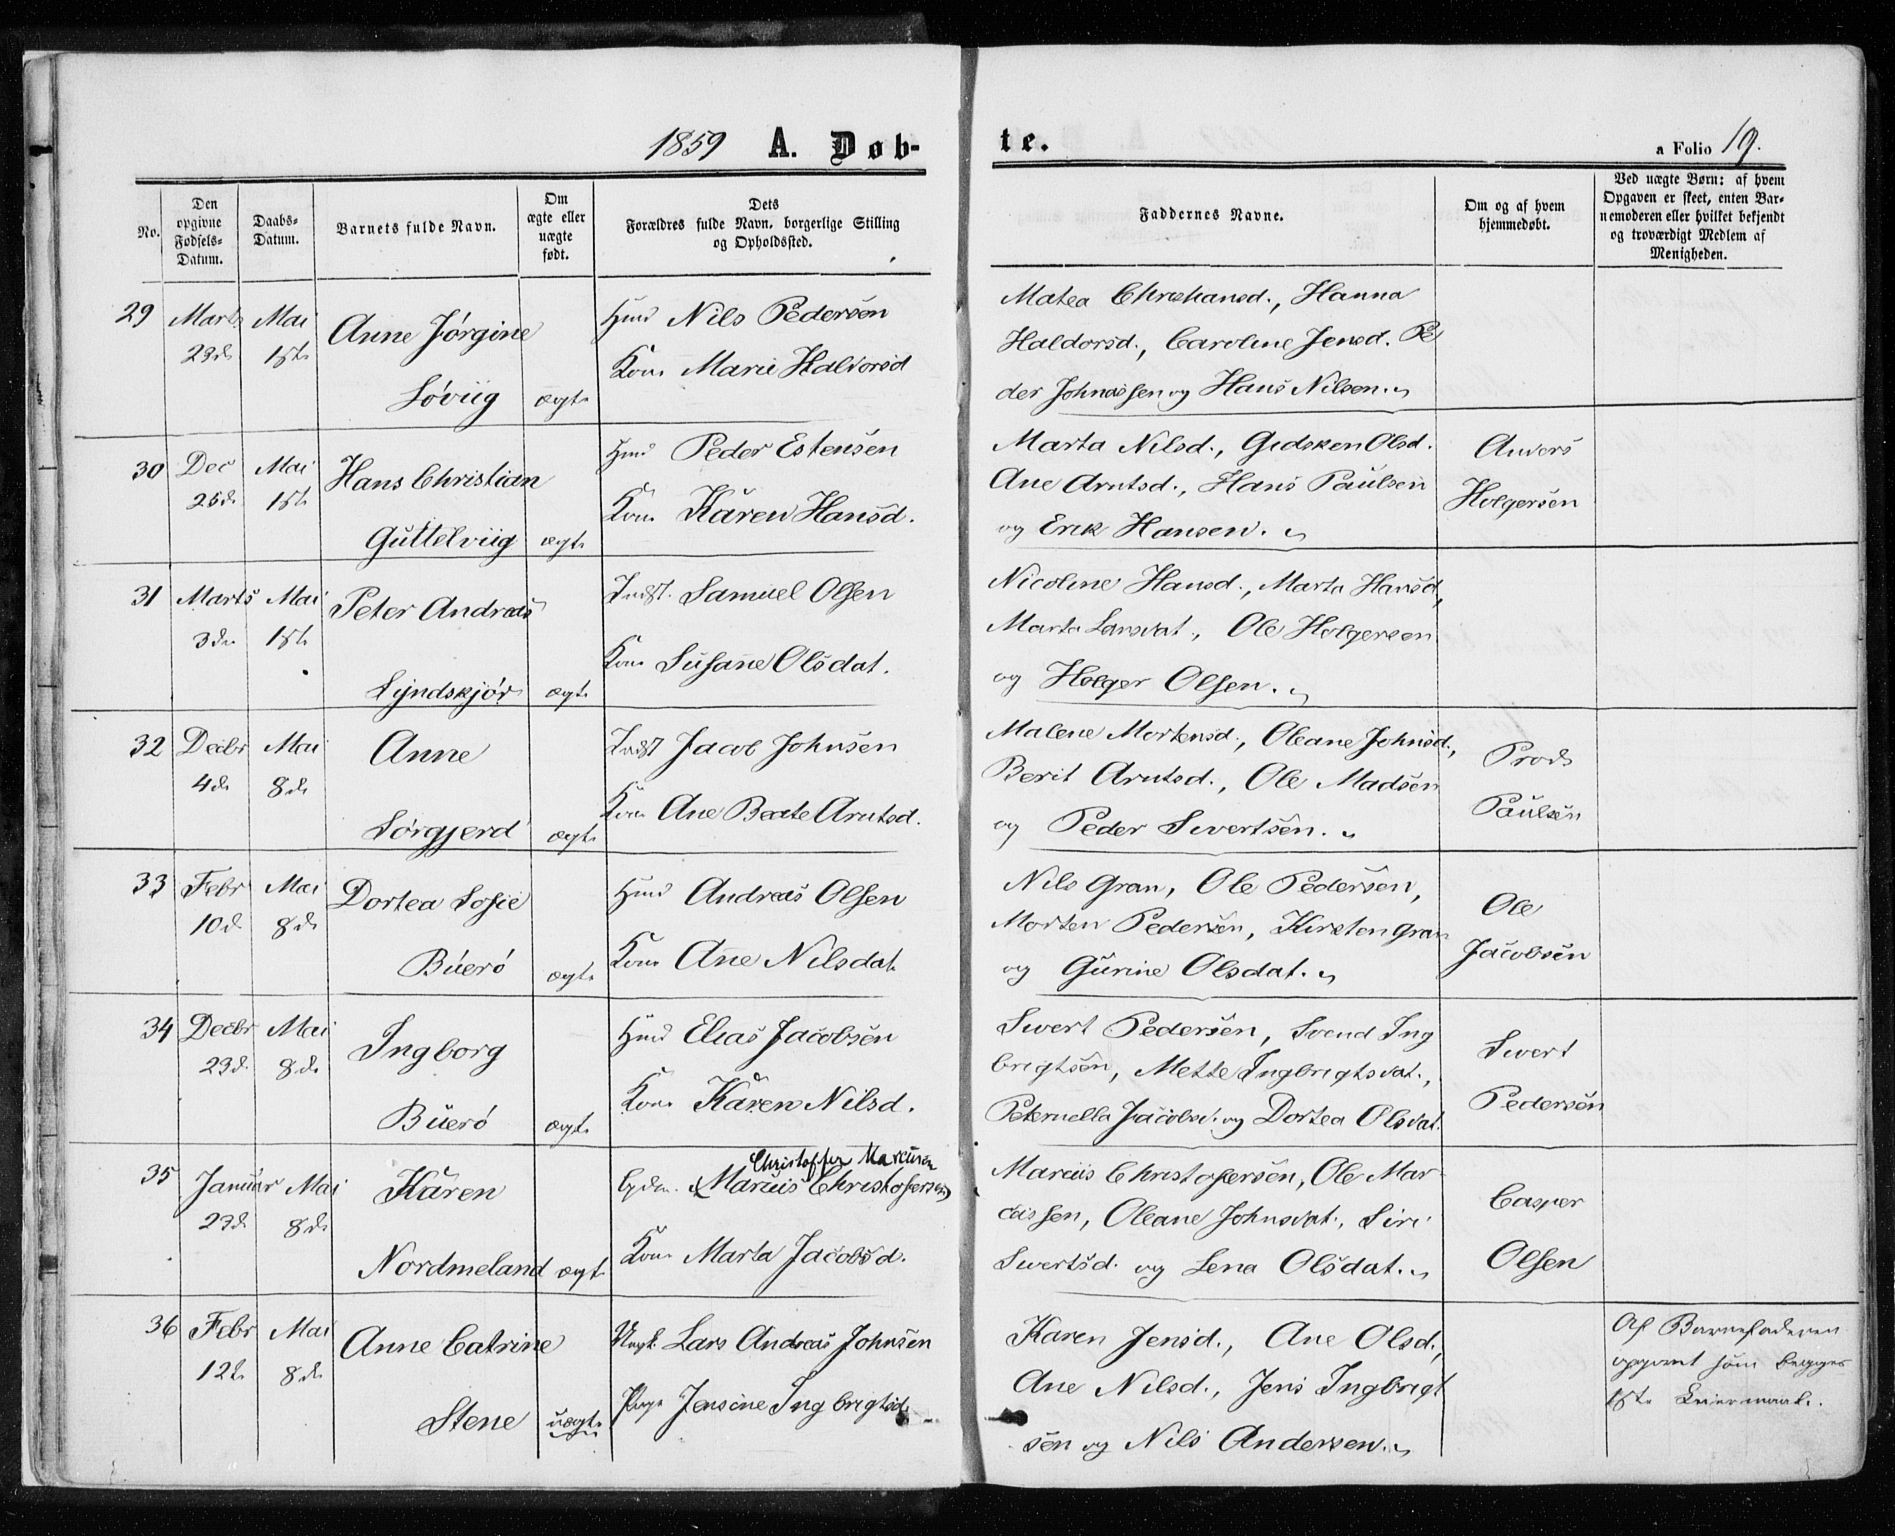 1859 A. Døb-
te.
a Folio 19.
No.
Den
opgivne
Fødsels-
Datum.
Daabs-
Datum.
Barnets fulde Navn.
Om
ægte eller
uægte
født.
Dets
Forældres fulde Navn, borgerlige Stilling
og Opholdssted.
Faddernes Navne.
Om og af hvem
hjemmedøbt.
Ved uægte Børn: af hvem
Opgaven er skeet, enten Bar-
nemoderen eller hvilket bekjendt
og troværdigt Medlem af
Menigheden.
29 Marts Mai
23d 1ste
Anne Jørgine
Søviig ægte
Huusd Nils Pedersen
Kone Marie Haldorsd
Matea Christiansd., Hanna
Haldorsd., Caroline Jensd. Pe
der Johnassen og Hans Nilsen.
30 Dec Mai
25d 1ste
Hans Christian
Guttelviig ægte
Huusd Peder Estensen
Kone Karen Hansd.
Marta Nilsd., Gidsken Olsd.
Ane Arntsd., Hans Paulsen
og Erik Hansen.
Anders
Holgersen
31 Marts Mai
3de 1ste
Peter Andreas
Syndskjør ægte
Indst. Samuel Olsen
Kone Susane Olsdat.
Nicoline Hansd., Marta Hansd,
Marta Larsdat., Ole Holgersen
og Holger Olsen.
32 Decbr Mai
4de 8de
Anne
Sørgjerd ægte
Indst Jacob Johnsen
Kone Ane Beate Arntsd.
Malene Mortensd., Oleane Johnsd.,
Berit Arntsd., Ole Madsen
og Peder Sivertsen.
Prods
Paulsen
33 Febr Mai
10d 8de
Dortea Sofie
Buerø ægte
Huusd Andreas Olsen
Kone Ane Nilsdat.
Nils Gran, Ole Pedersen,
Morten Pedersen, Kirsten Gran
og Gurine Olsdat.
Ole
Jacobsen
34 Decbr Mai
23d 8de
Ingborg
Buerø ægte
Huusd Elias Jacobsen
Kone Karen Nilsd.
Sivert Pedersen, Svend Ing
brigtsen, Mette Ingbrigtsdat.,
Peternella Jacobsd. og Dortea Olsdat.
Sivert
Pedersen
35 Januar Mai
23d 8de
Karen
Nordmeland ægte
Christoffer Marcusen
Gdm. (Marcus Christofersen)
Kone Marta Jacobsd.
Marcus Christofersen, Ole Mar
cussen, Oleane Johnsdat., Siri
Sivertsd. og Lena Olsdat.
Casper
Olsen
36 Febr Mai
12te 8de
Anne Catrine
Stene uægte
Ungk. Lars Andreas Johnsen
Pige Jensine Ingbrigtsd.
Karen Jensd., Ane Olsd.,
Ane Nilsd., Jens Ingbrigt
sen og Nils Andersen.
Af Barnefaderen
opgivet som begges
1ste Leiermaal.